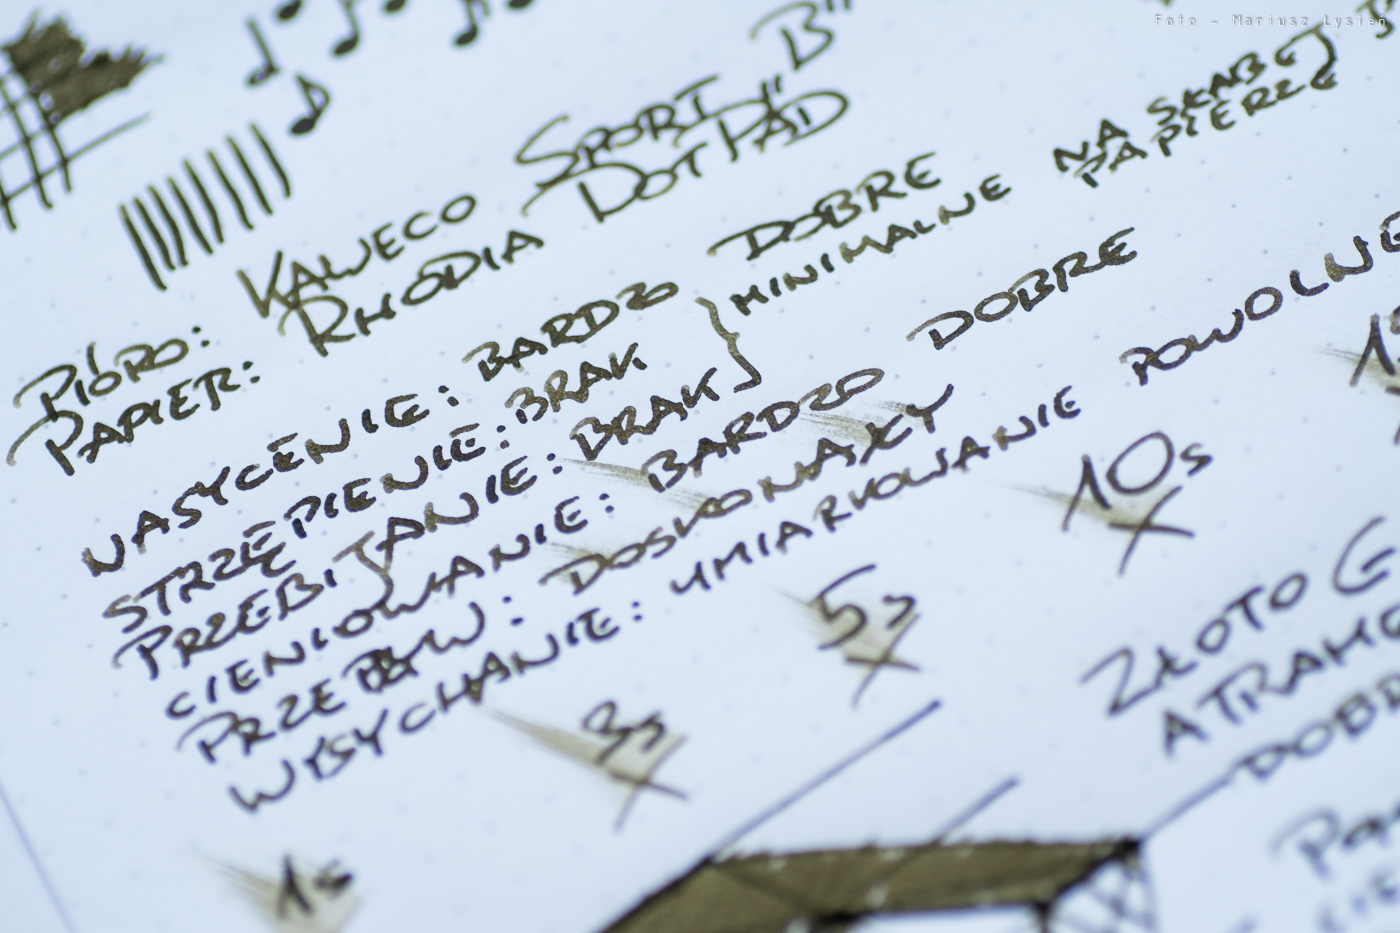 Foto - Mariusz Łysień
PIÓRO: KAWECO SPORT "B"
PAPIER: RHODIA DOT PAD
NASYCENIE: BARDZO DOBRE
STRZĘPIENIE: BRAK } MINIMALNE NA SŁABEJ
PAPIERZE
PRZEBIJANIE: BRAK
CIENIOWANIE: BARDZO DOBRE
PRZEPŁYW: DOSKONAŁY
WYSYCHANIE: UMIARKOWANIE POWOLNE
1s 3s 5s 10s
ZŁOTO